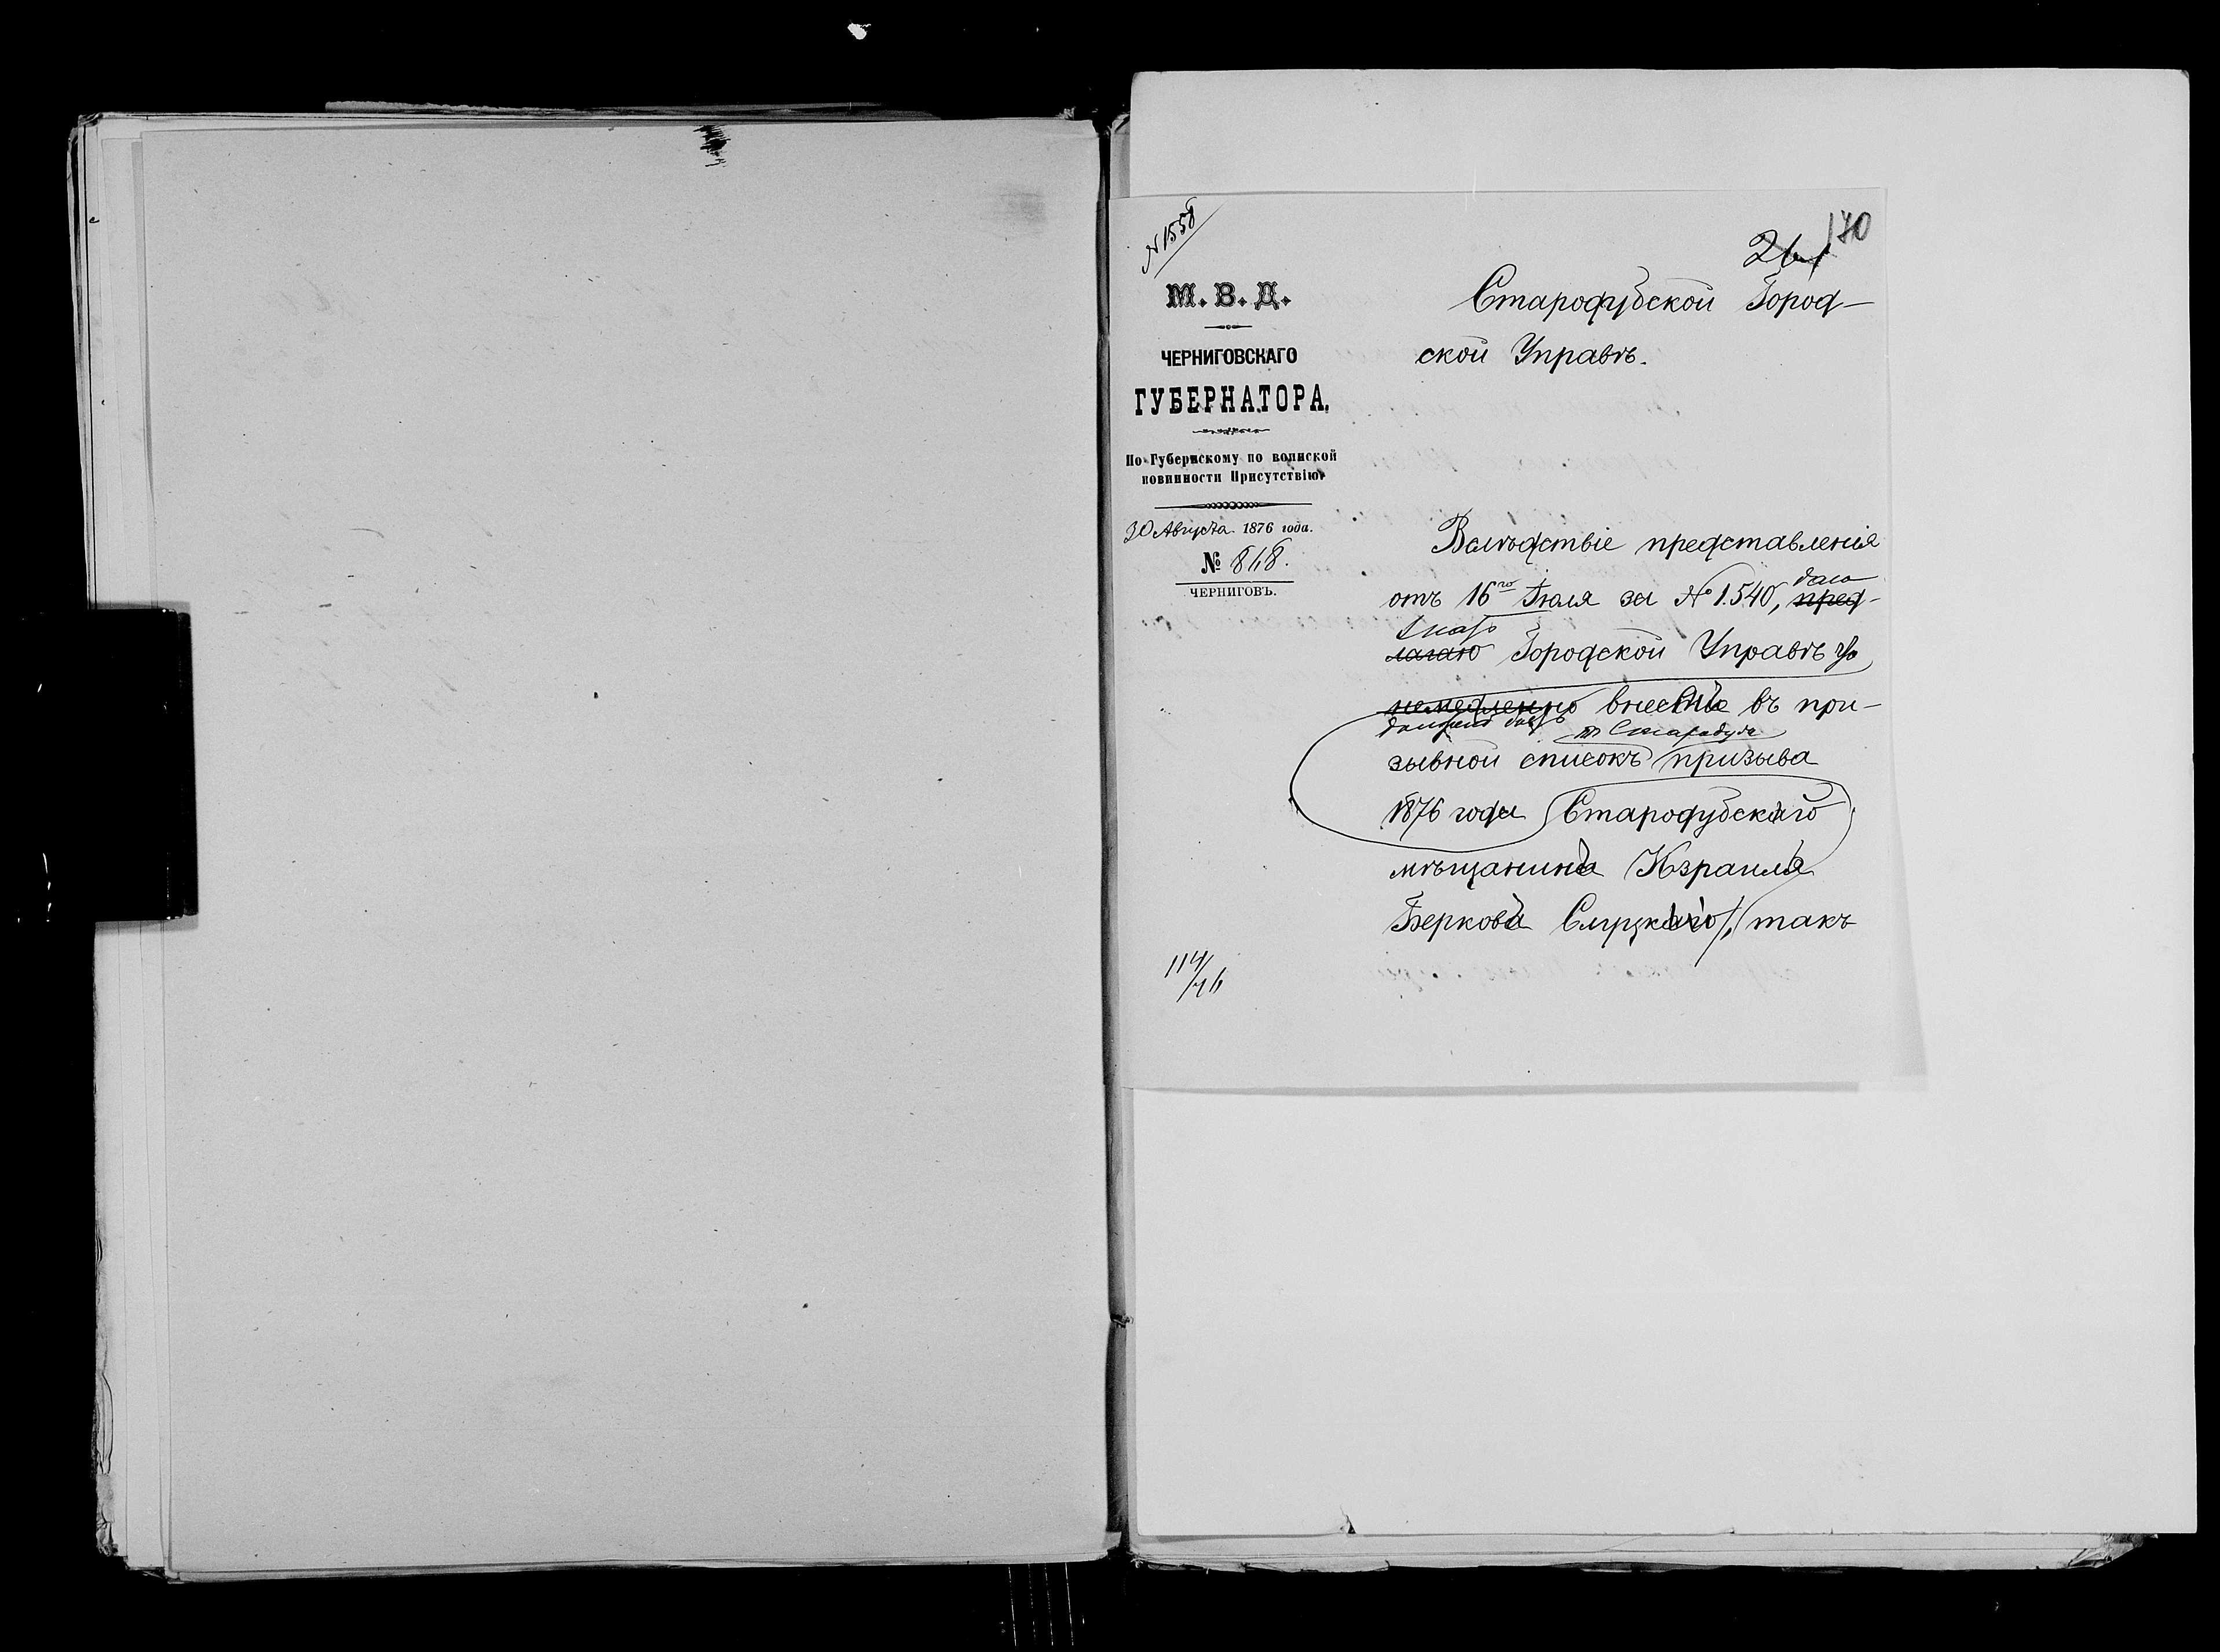 № 1558
170
М. В. Д.
ЧЕРНИГОВСКАГО
ГУБЕРНАТОРА.
По Губернскому по воинской
повинности Присутствію
30 Августа 1876 года.
№ 818.
ЧЕРНИГОВЪ.
Стародубской Город-
ской Управѣ.
Вслѣдствіе представленія
отъ 16го Іюля за № 1540, даю
пред-
знать
лагаю Городской Управѣ что
немедленно внесенъ въ при-
долженъ быть
зывной списокъ призыва
1876 года Стародубскаго
мѣщанина Израиля
Беркова Слуцкаго, такъ